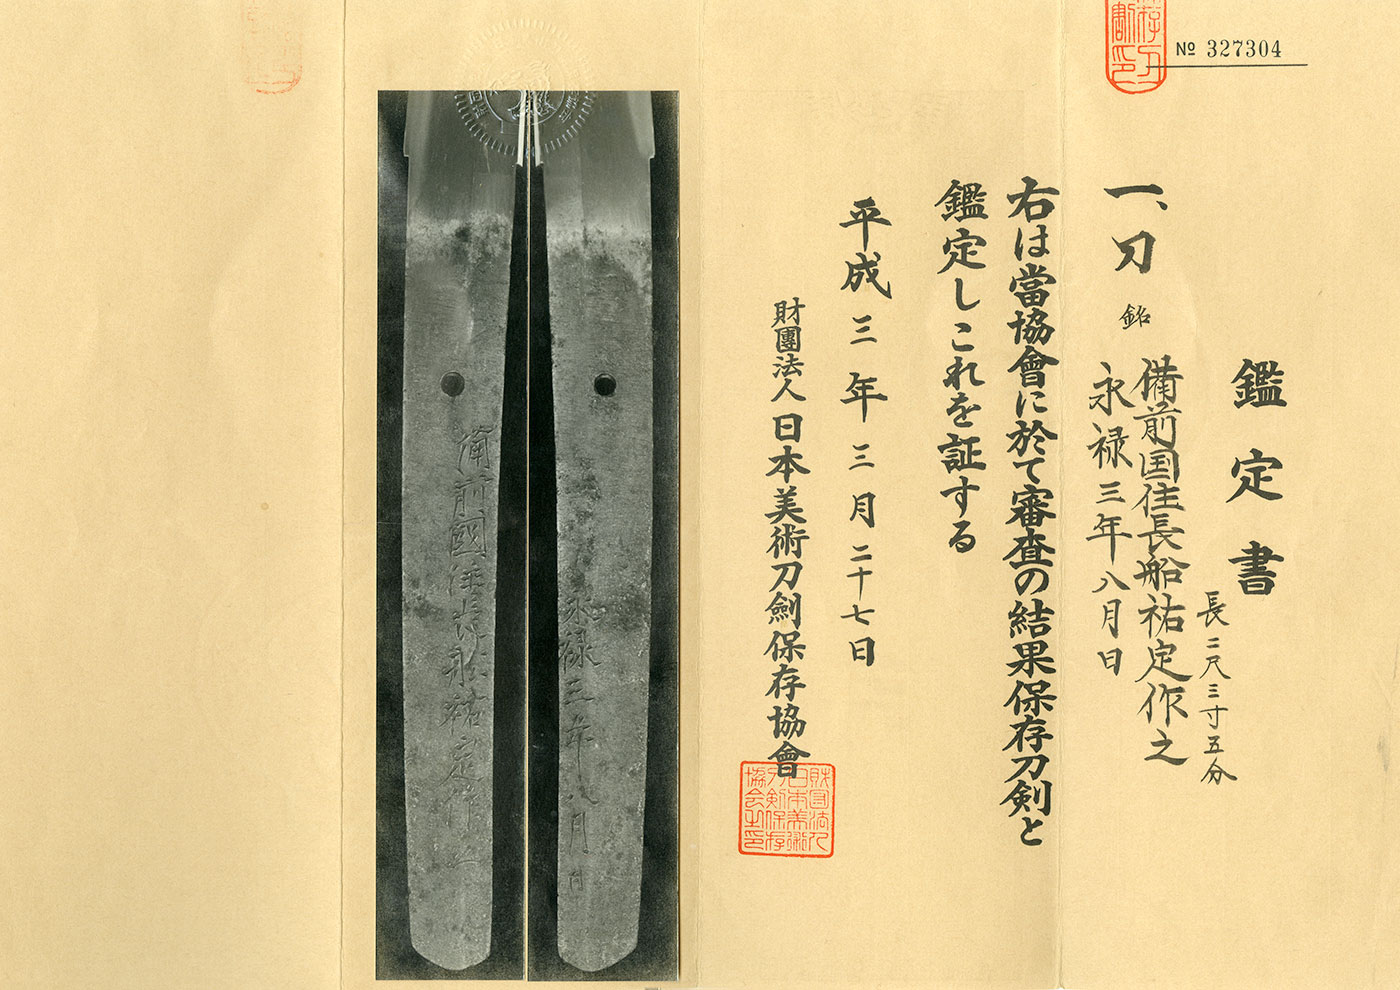 № 327304
鑑定書
一、刀 銘 備前国住長船祐定作之
永禄三年八月日
長二尺三寸五分
右は當協會に於て審査の結果保存刀剣と
鑑定しこれを証する
平成三年三月二十七日
財團法人日本美術刀劍保存協會
財団法人
日本美術
刀剣保存
協会之印
永禄三年八月日
備前國住長船祐定作之